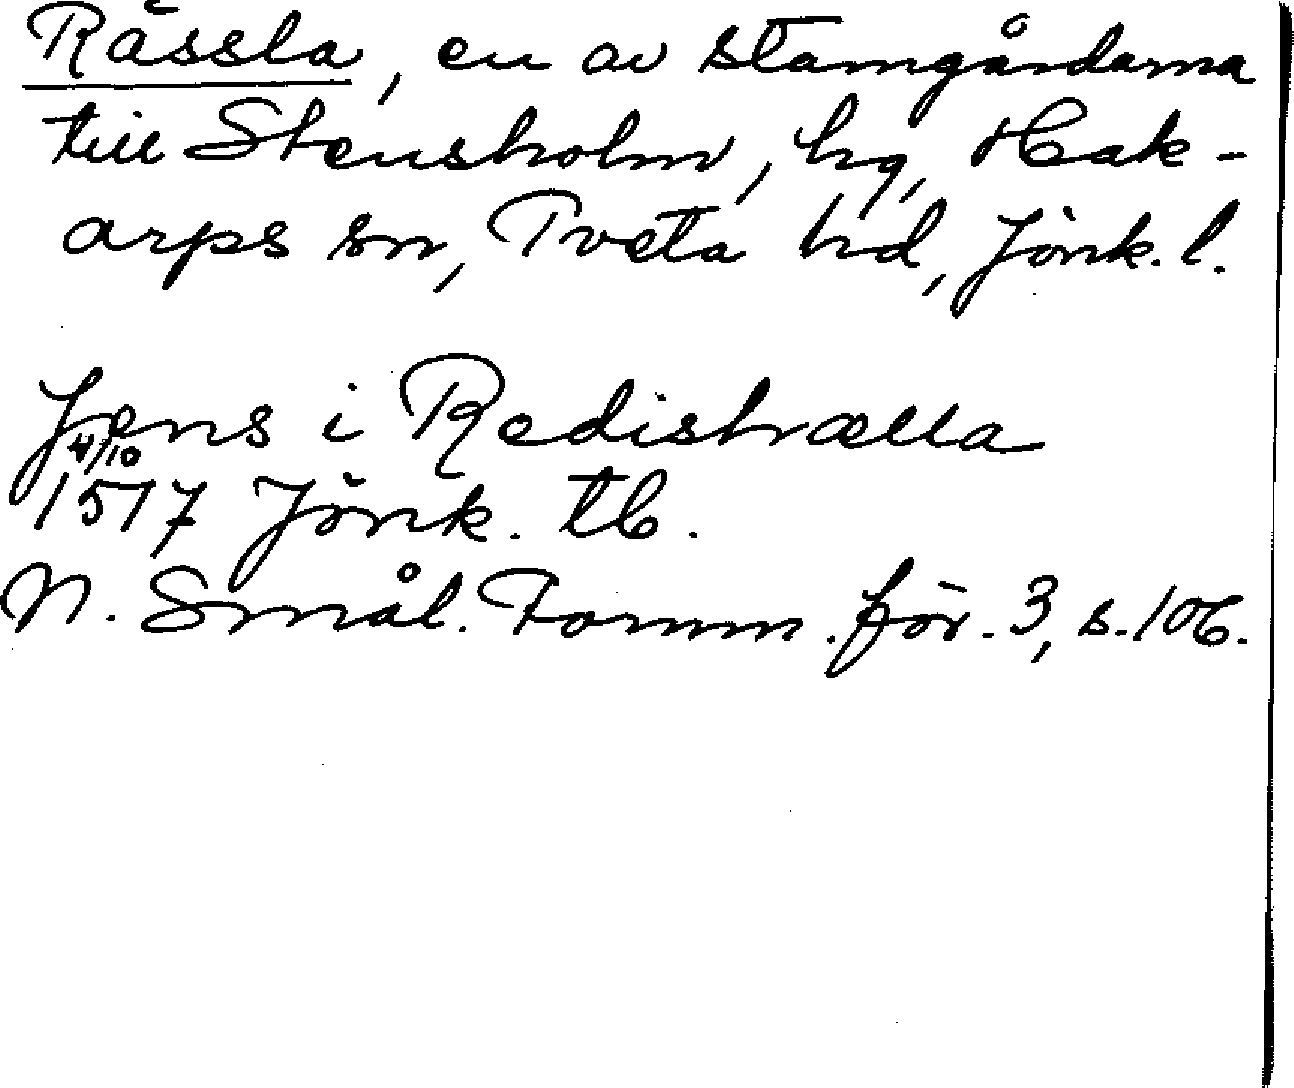 Rässla, en av stamgårdarna
till Stensholm, hg, Hak-
arps sn, Tveta hd, Jönk. l.
Jens i Redishælla
4/10
1517 Jönk. tb.
N. Smål. Fornm. för. 3, s. 106.